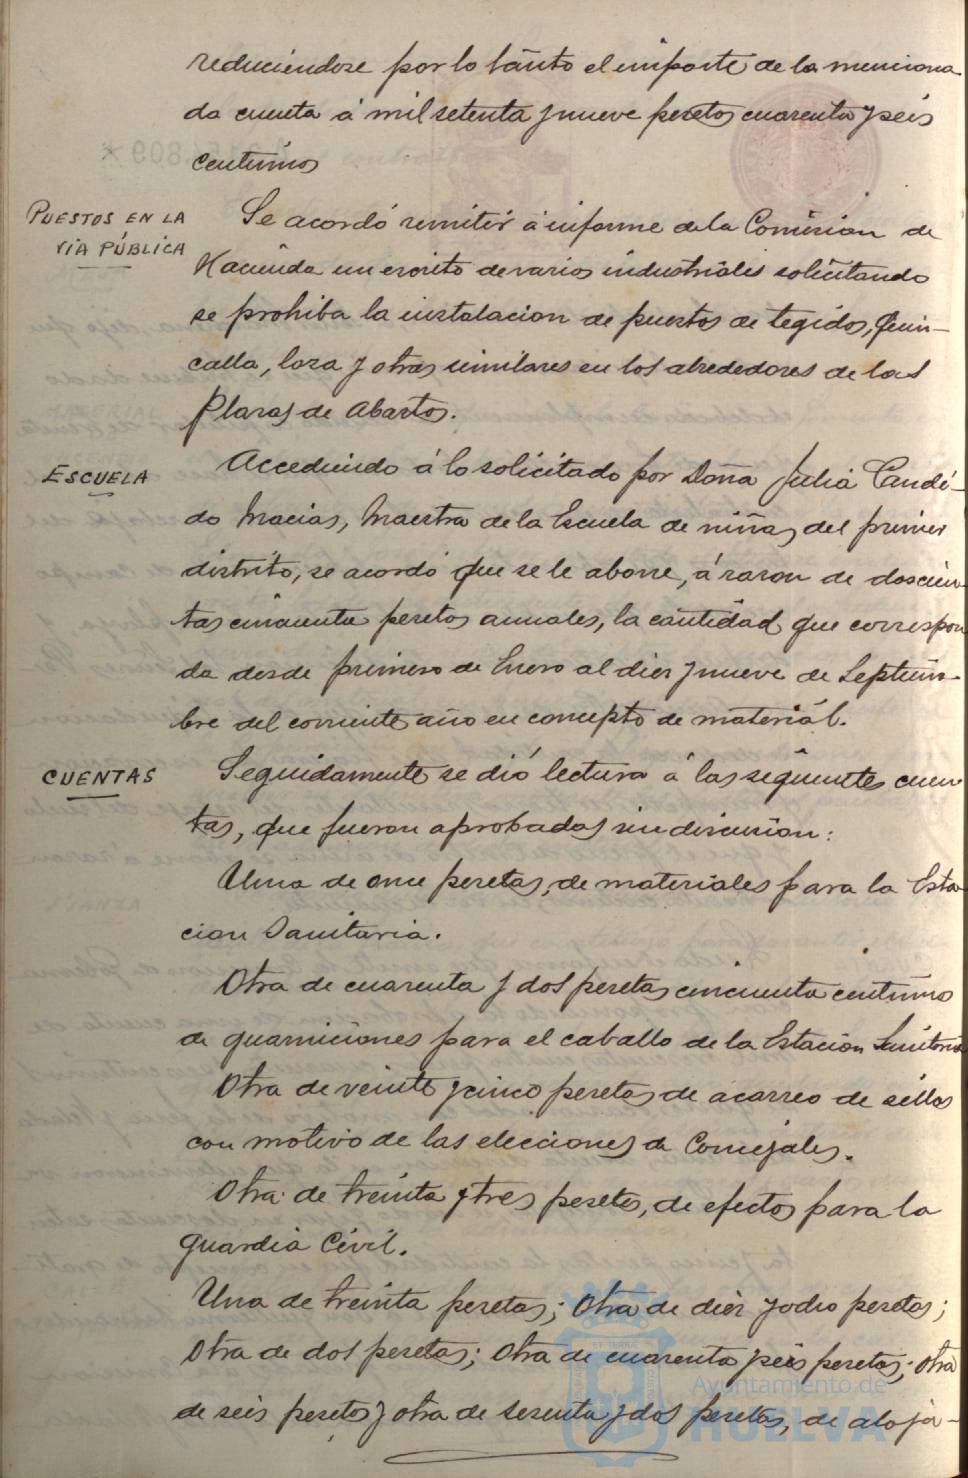 reduciéndose por lo tanto el importe de la menciona
da cuenta á mil setenta y nueve pesetas cuarenta y seis
centimos
PUESTOS EN LA
VIA PÚBLICA
Se acordó remitir á informe de la Comision de
Hacienda un escrito de varios industriales solicitando
se prohiba la instalacion de puestos de tegidos, quin-
calla, loza y otras similares en los alrededores de las
Plazas de Abastos.
ESCUELA
Accediendo á lo solicitado por Doña Julia Candi-
do Macias, Maestra de la Escuela de niñas del primer
distrito, se acordó que se le abone, á razon de doscien-
tas cincuenta pesetas anuales, la cantidad que correspon
da desde primero de Enero al diez y nueve de Septiem-
bre del corriente año en concepto de material.
CUENTAS
Seguidamente se dió lectura á las siguientes cuen
tas, que fueron aprobadas sin discusion:
Una de once pesetas, de materiales para la Esta-
cion Sanitaria.
Otra de cuarenta y dos pesetas cincuenta centimos
de guarniciones para el caballo de la Estacion Sanitaria
Otra de veinte y cinco pesetas de acarreo de sillas
con motivo de las elecciones de Concejales.
Otra de treinta y tres pesetas, de efectos para la
Guardia Civil.
Una de treinta pesetas; otra de diez y ocho pesetas;
otra de dos pesetas; otra de cuarenta y seis pesetas; otra
de seis pesetas y otra de sesenta y dos pesetas, de aloja-
Ayuntamiento de
HUELVA